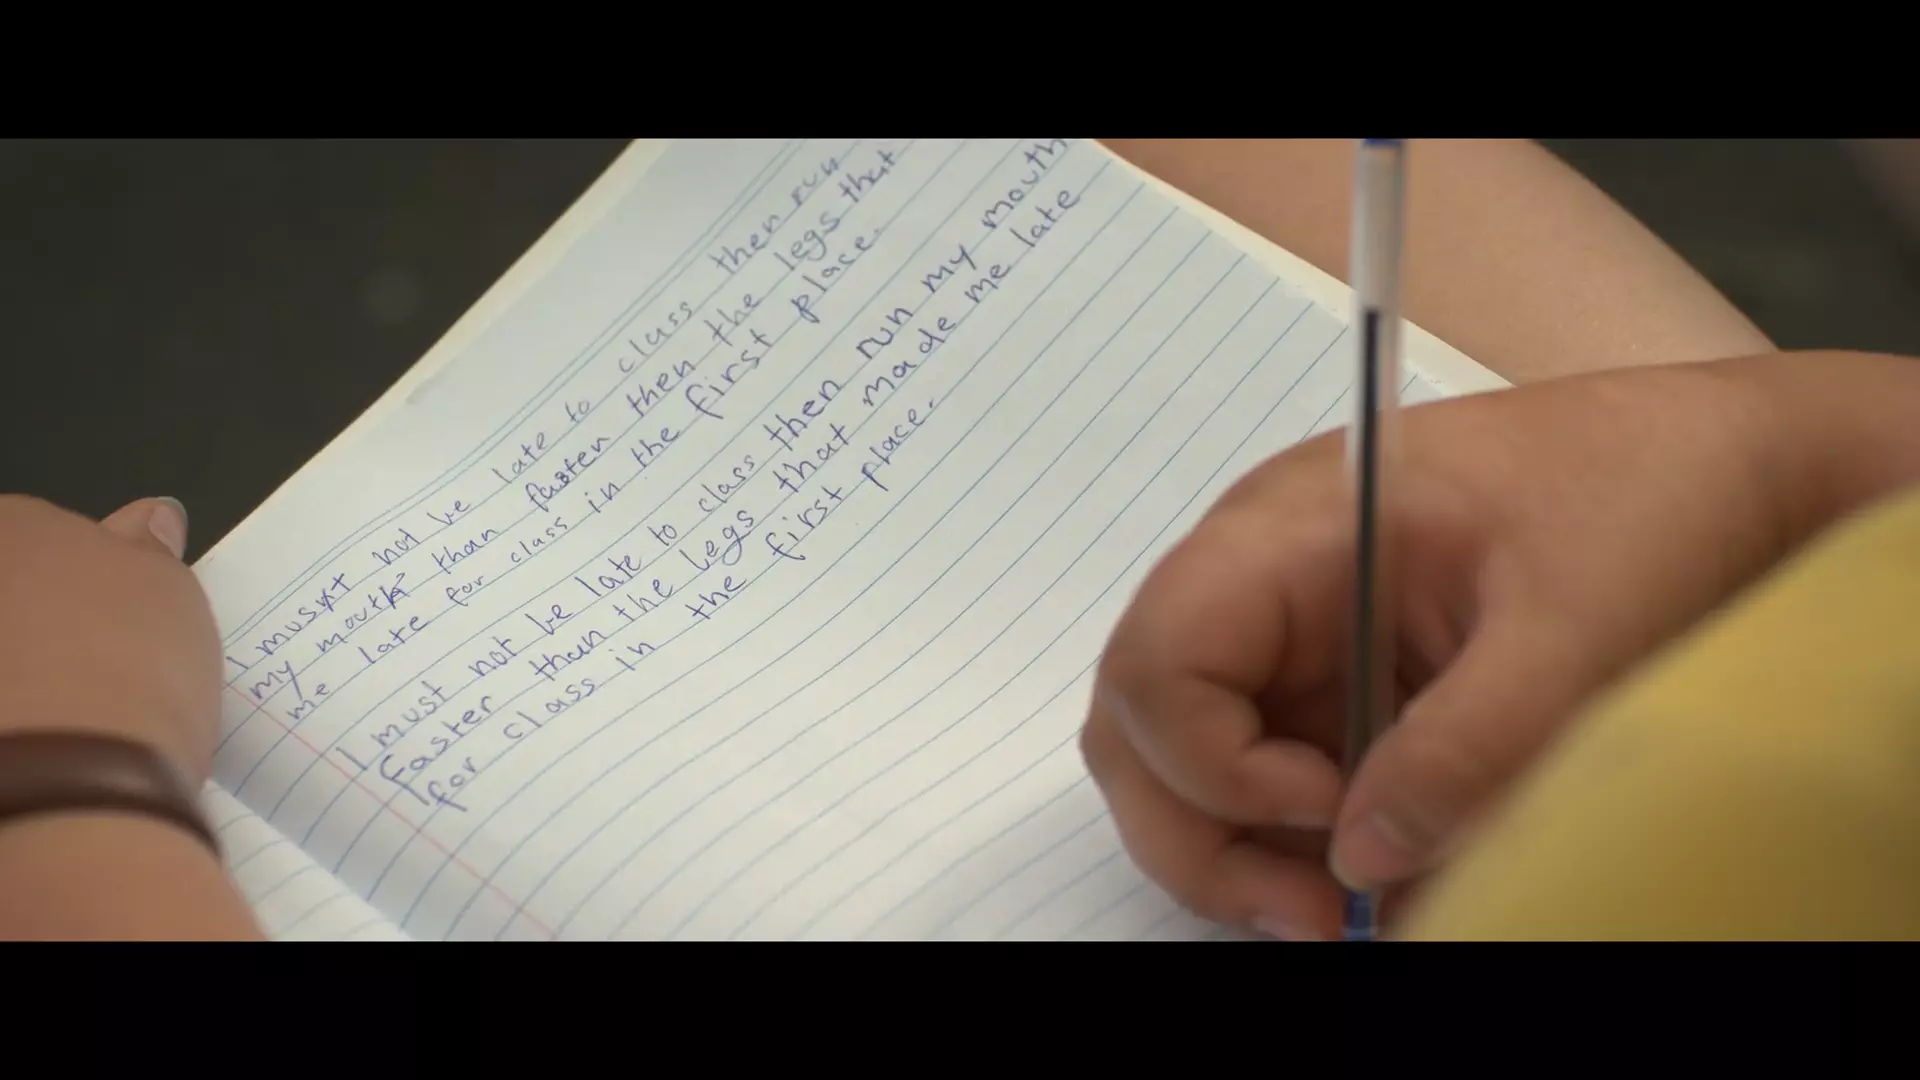 I must not be late to class then run
my mouth than fasten then the legs that
me late for class in the first place.
I must not be late to class then run my mouth
faster than the legs that made me late
for class in the first place.